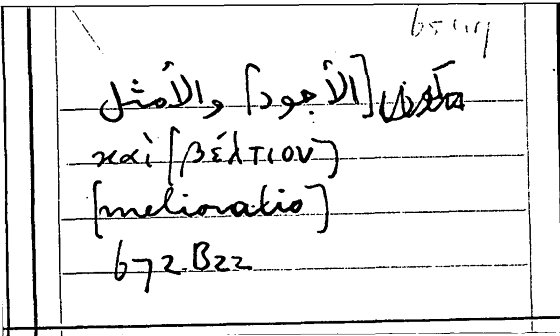 [الأجود] والأمثل
καὶ [βέλτιον]
[melioratio]
672 B22